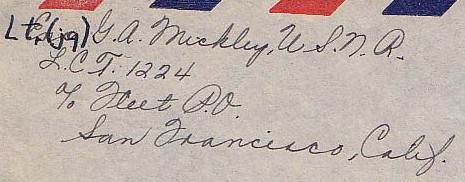 Lt.(jg) G.A. Mickley, U.S.N.R.
L.C.T. 1224
℅ Fleet P.O.
San Francisco, Calif.